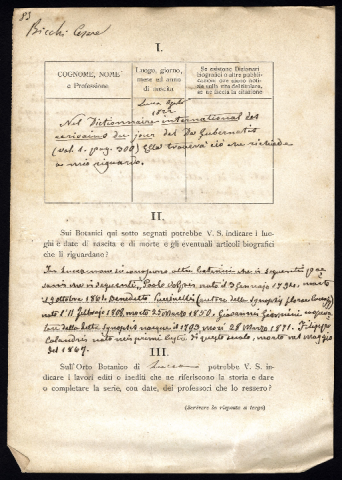 83
Bicchi Cesare
I.
COGNOME, NOME
e Professione
Luogo, giorno,
mese ed anno
di nascita
Se esistono Dizionari
biografici o altre pubbli-
cazioni che diano noti-
zie sulla vita del titolare,
se ne faccia la citazione
Lucca
1822
Nel Dictionnaire international des
écrivains du jour del De Gubernatis
(vol. 1. pag. 300) Ella troverà ciò che richiede
a mio riguardo.
II.
Sui Botanici qui sotto segnati potrebbe V. S. indicare i luo-
ghi e date di nascita e di morte e gli eventuali articoli biografici
che li riguardano?
In Lucca non vi furono altri botanici che i seguenti
Paolo Volpi nato il 3 Gennajo morto
il 9 ottobre Benedetto Puccinelli (autore della Synopsis florae lucensis)
nato l'11 Febbrajo 1808, morto 25 Marzo 1850. Giovanni Giannini
della detta Synopsis nacque il 1793 morì 28 Marzo 1871. Filippo
Calandrini nato nei primi lustri di questo secolo, morto nel maggio
del 1867.
III.
Sull'Orto Botanico di Lucca potrebbe V. S. in-
dicare i lavori editi o inediti che ne riferiscono la storia e dare
o completare la serie, con date, dei professori che lo ressero?
(Scrivere la risposta a tergo)